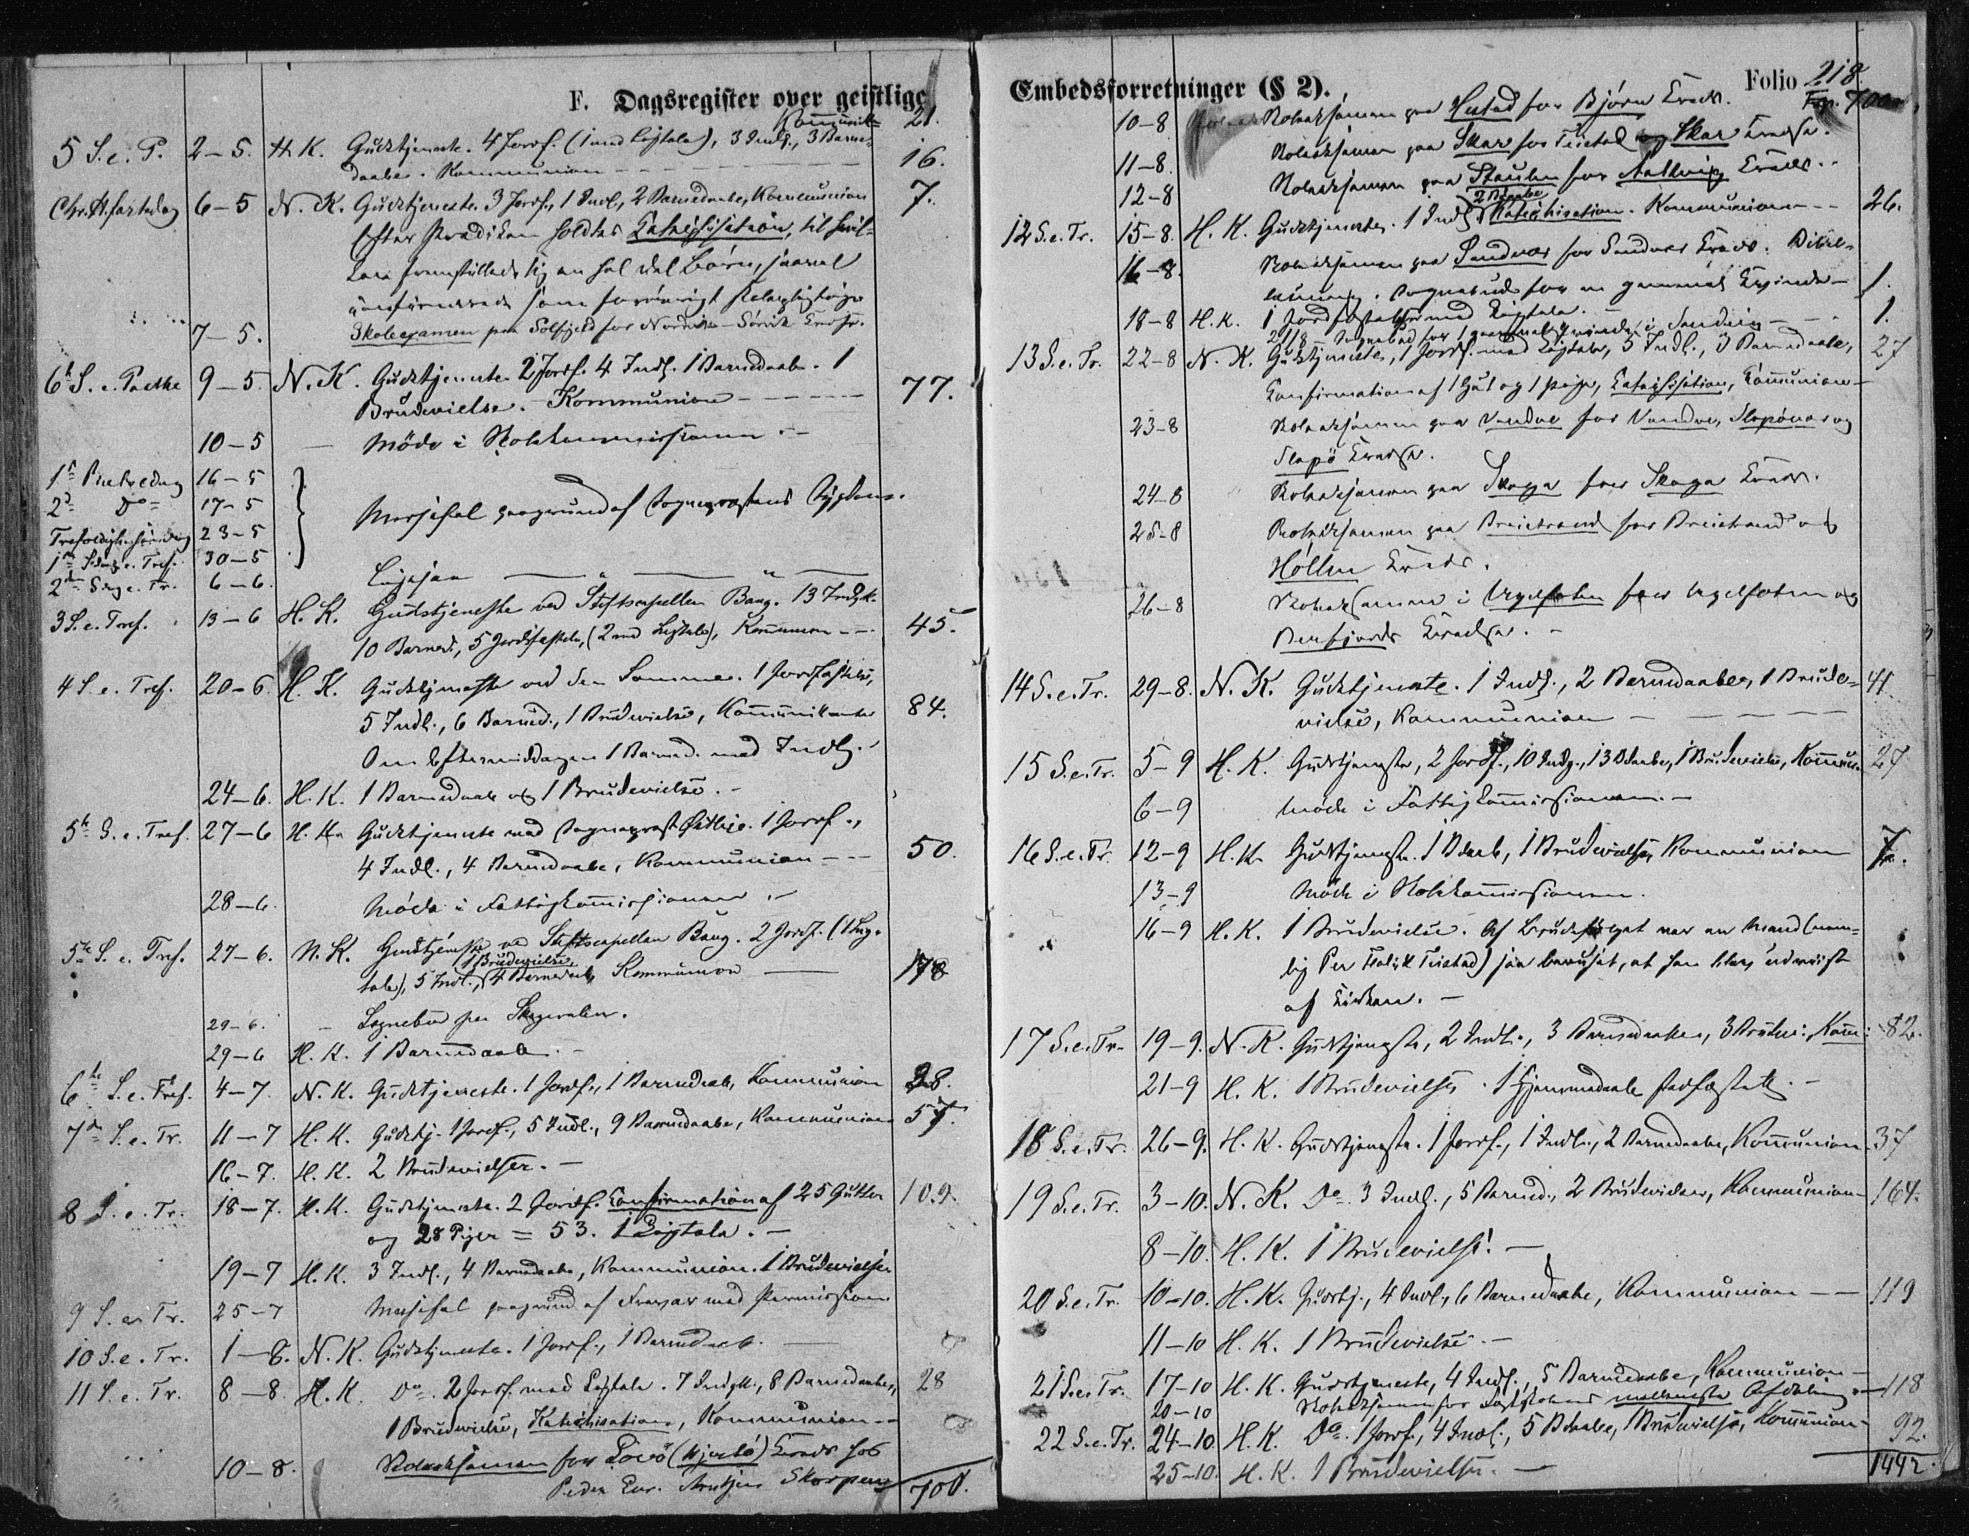 F. Dagsregister over geistlige
Kommunik= 21.
5 S. e. P. 2-5. H. K. Gudstjeneste. 4 Jordf. (1 med Ligtale), 3 Indl., 3 Barne=
daabe. Kommunion - - - 16.
Chr. H.fartsdag 6-5 N. K. Gudstjeneste. 3 Jordf., 1 Indl., 2 Barnedaabe, Kommunion 7.
Efter Prædiken holdtes Katechisation, til hvil=
ken fremstillede sig en hel del Børn, saavel
ukonfirmerede som forøvrigt
7-5. Skoleexamen paa Solfjeld for Nordvik - Sørvik Kredse.
6te S. e. Paaske 9-5. N. K. Gudstjeneste. 2 Jordf. 4 Indl. 1 Barnedaab. 1
Brudevielse. - Kommunion - - - 77.
10-5 Møde i Skolekommissionen. -
1ste Pintsedag 16-5
2den Do 17-5
Messefal paagrund af Sogneprestens Sygdom.
Trefoldighedssøndag 23-5
1ste Søndag e. Tref. 30-5
2den Søg e. Tr. 6-6. Ligesaa
3 S. e. Tref. 13-6 H. K. Gudstjeneste ved Stiftscapellan Bang. 13 Indl.
10 Barned., 5 Jordfæstelser, (2 med Ligtale), Kommunion - - 45.
4 S. e. Tref. 20-6. H. K. Gudstjeneste ved den Samme. 1 Jordfæstelse,
5 Indl., 6 Barned., 1 Brudevielse, Kommunikanter 84.
Om Eftermiddagen 1 Barned. med Indl.
24-6. H. K. 1 Barnedaab og 1 Brudevielse. -
5te S. e. Tref. 27-6 H. K. Gudstjeneste med Sogneprest 1 Jordf.,
4 Indl., 4 Barnedaabe, Kommunion - - - 50.
28-6. Møde i Fattigkommissionen. -
5te S. e. Tref. 27-6. N. K. Gudstjeneste ved Stiftscapellan Bang. 2 Jordf. (1 Lig=
1 Brudevielse,
tale), 5 Indl., 4 Barnedaab, Kommunion 178
29-6. - Sognebud paa
29-6 H. K. 1 Barnedaab. -
6te S. e. Tref. 4-7. N. K. Gudstjeneste. 1 Jordf., 1 Barnedaab, Kommunion 28.
7de S. e. Tr. 11-7 H. K. Gudstj. 1 Jordf., 5 Indl., 9 Barnedaabe, Kommunion 57.
16-7. H. K. 2 Brudevielser. -
8 S. e. Tr. 18-7. H. K. Gudstjeneste. 2 Jordf. Confirmation af 25 Gutter 109.
og 28 Piger = 53. 1 Ligtale. -
19-7 H. K. 3 Indl., 4 Barnedaabe, Kommunion. 1 Brudevielse
9 S. e. Tr. 25-7 Messefal paagrund af Fravær med Permission
10 S. e. Tr. 1-8. N. K. Gudstjeneste. 1 Jordf., 1 Barnedaab.
11 S. e. Tr. 8-8. H. K. Do. 2 Jordf. med Ligtale. 7 Indl., 8 Barnedaabe, 28
1 Brudevielse, Katechisation, Kommunion - -
10-8. Skoleexamen for Lovö (Hjortö) Kreds hos
Peder Enr. Skorpen
700.
Embedsforretninger (§ 2). Folio 218.
Frp. 700
10-8 Skoleexamen paa Husad for Bjørn Kreds.
11-8. Skoleexamen paa Skar for Teistad og Skar Kredse.
12-8 Skoleexamen paa Staulen for Kreds.
2 Bdaabe
12 S. e. Tr. 15-8. H. K. Gudstjeneste. 1 Indl. Katechisation. Kommunion - - 26.
16-8. Skoleexamen paa Sandnæs for Sandnæs Kreds. Bibel=
læsning. Sognebud for en gammel Kvinde - 1.
18-8 H. K. 1 Jordfæstelse med Ligtale. -
21/8 - Sognebud for 1 gammel Kvinde i Sandvig - - 1.
13 S. e. Tr. 22-8 N. K. Gudstjeneste, 1 Jordf. med Ligtale, 5 Indl., 3 Barnedaabe, 27
Confirmation af 1 Gut og 1 Pige, Katechisation, Kommunion -
23-8 Skoleexamen paa Vandve for Vandve, Slapönæs og
Slapö Kredse.
24-8 Skoleexamen paa Skaga for Skaga Kreds.
25-8 Skoleexamen paa Breistrand for Breistrand og
Höllen Kreds.
26-8 Skoleexamen i for og
Kredse. -
14 S. e. Tr. 29-8. N. K. Gudstjeneste. 1 Indl., 2 Barnedaabe, 1 Brude= 41.
vielse, Kommunion - - -
15 S. e. Tr. 5-9 H. K. Gudstjeneste, 2 Jordf., 10 Indl., 13 Bdaabe, 1 Brudevielse, Kommun. 27
6-9 Møde i Fattigkommissionen. -
16 S. e. Tr. 12-9 H. K. Gudstjeneste. 1 Bdaab, 1 Brudevielse, Kommunion 7.
13-9 Møde i Skolekommissionen.
16-9 H. K. 1 Brudevielse. Af Brudefølget var en Mand (nem=
lig Per Teistad) saa beruset, at han blev udvist
af Kirken. -
17 S. e. Tr. 19-9. N. K. Gudstjeneste, 2 Indl., 3 Barnedaabe, 3 Brudev: Kom: 82.
21-9 H. K. 1 Brudevielse. 1 Hjemmedaab stadfæstet. -
18 S. e. Tr. 26-9. H. K. Gudstjeneste. 1 Jordf., 1 Indl., 2 Barnedaabe, Kommunion 37
19 S. e. Tr. 3-10. N. K. Do. 3 Indl., 5 Barned., 2 Brudevielser, Kommunion - 164.
8-10. H. K. 1 Brudevielse. -
20 S. e. Tr. 10-10. H. K. Gudstj., 4 Indl., 6 Barnedaabe, Kommunion - - 119
11-10 H. K. 1 Brudevielse. -
21 S. e. Tr. 17-10 H. K. Gudstjeneste, 4 Indl., 5 Barnedaabe, Kommunion - 118
20-10 Skoleexamen for Fastskolens mellemste Afdeling. -
22 S. e. Tr. 24-10. H. K. Do. 1 Jordf., 4 Indl., 5 Bdaabe, 1 Brudevielse, Kommunion - 92.
25-10. H. K. 1 Brudevielse. -
1442.